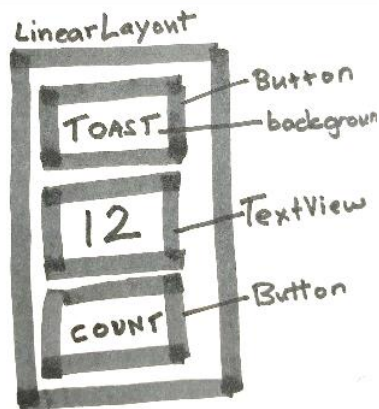 LinearLayout
Button
TOAST
backgroun
12
TextView
COUNT
Button